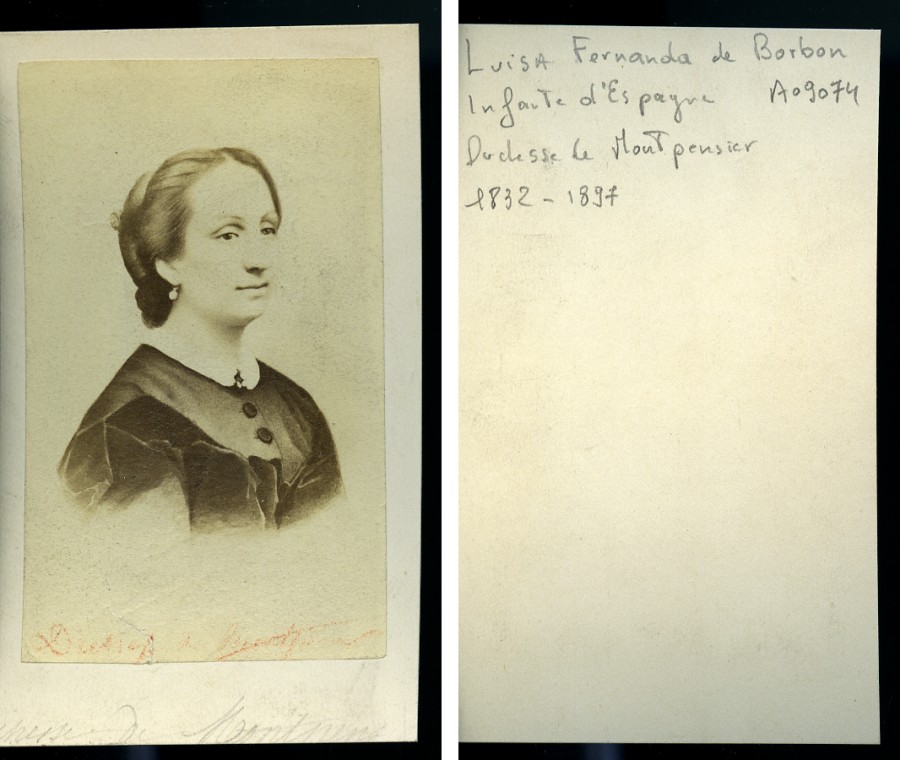 Duchesse de Montpensier
chesse de Montpens
Luisa Fernanda de Borbon
Infante d'Espagne A09074
Duchesse de Montpensier
1832 - 1897